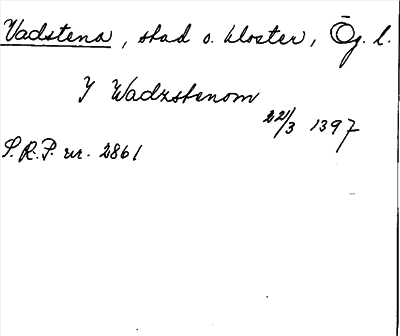 Vadstena, stad o. kloster, Ög. l.
J Wadzstenom
22/3 1397
S.R.P. nr. 2861